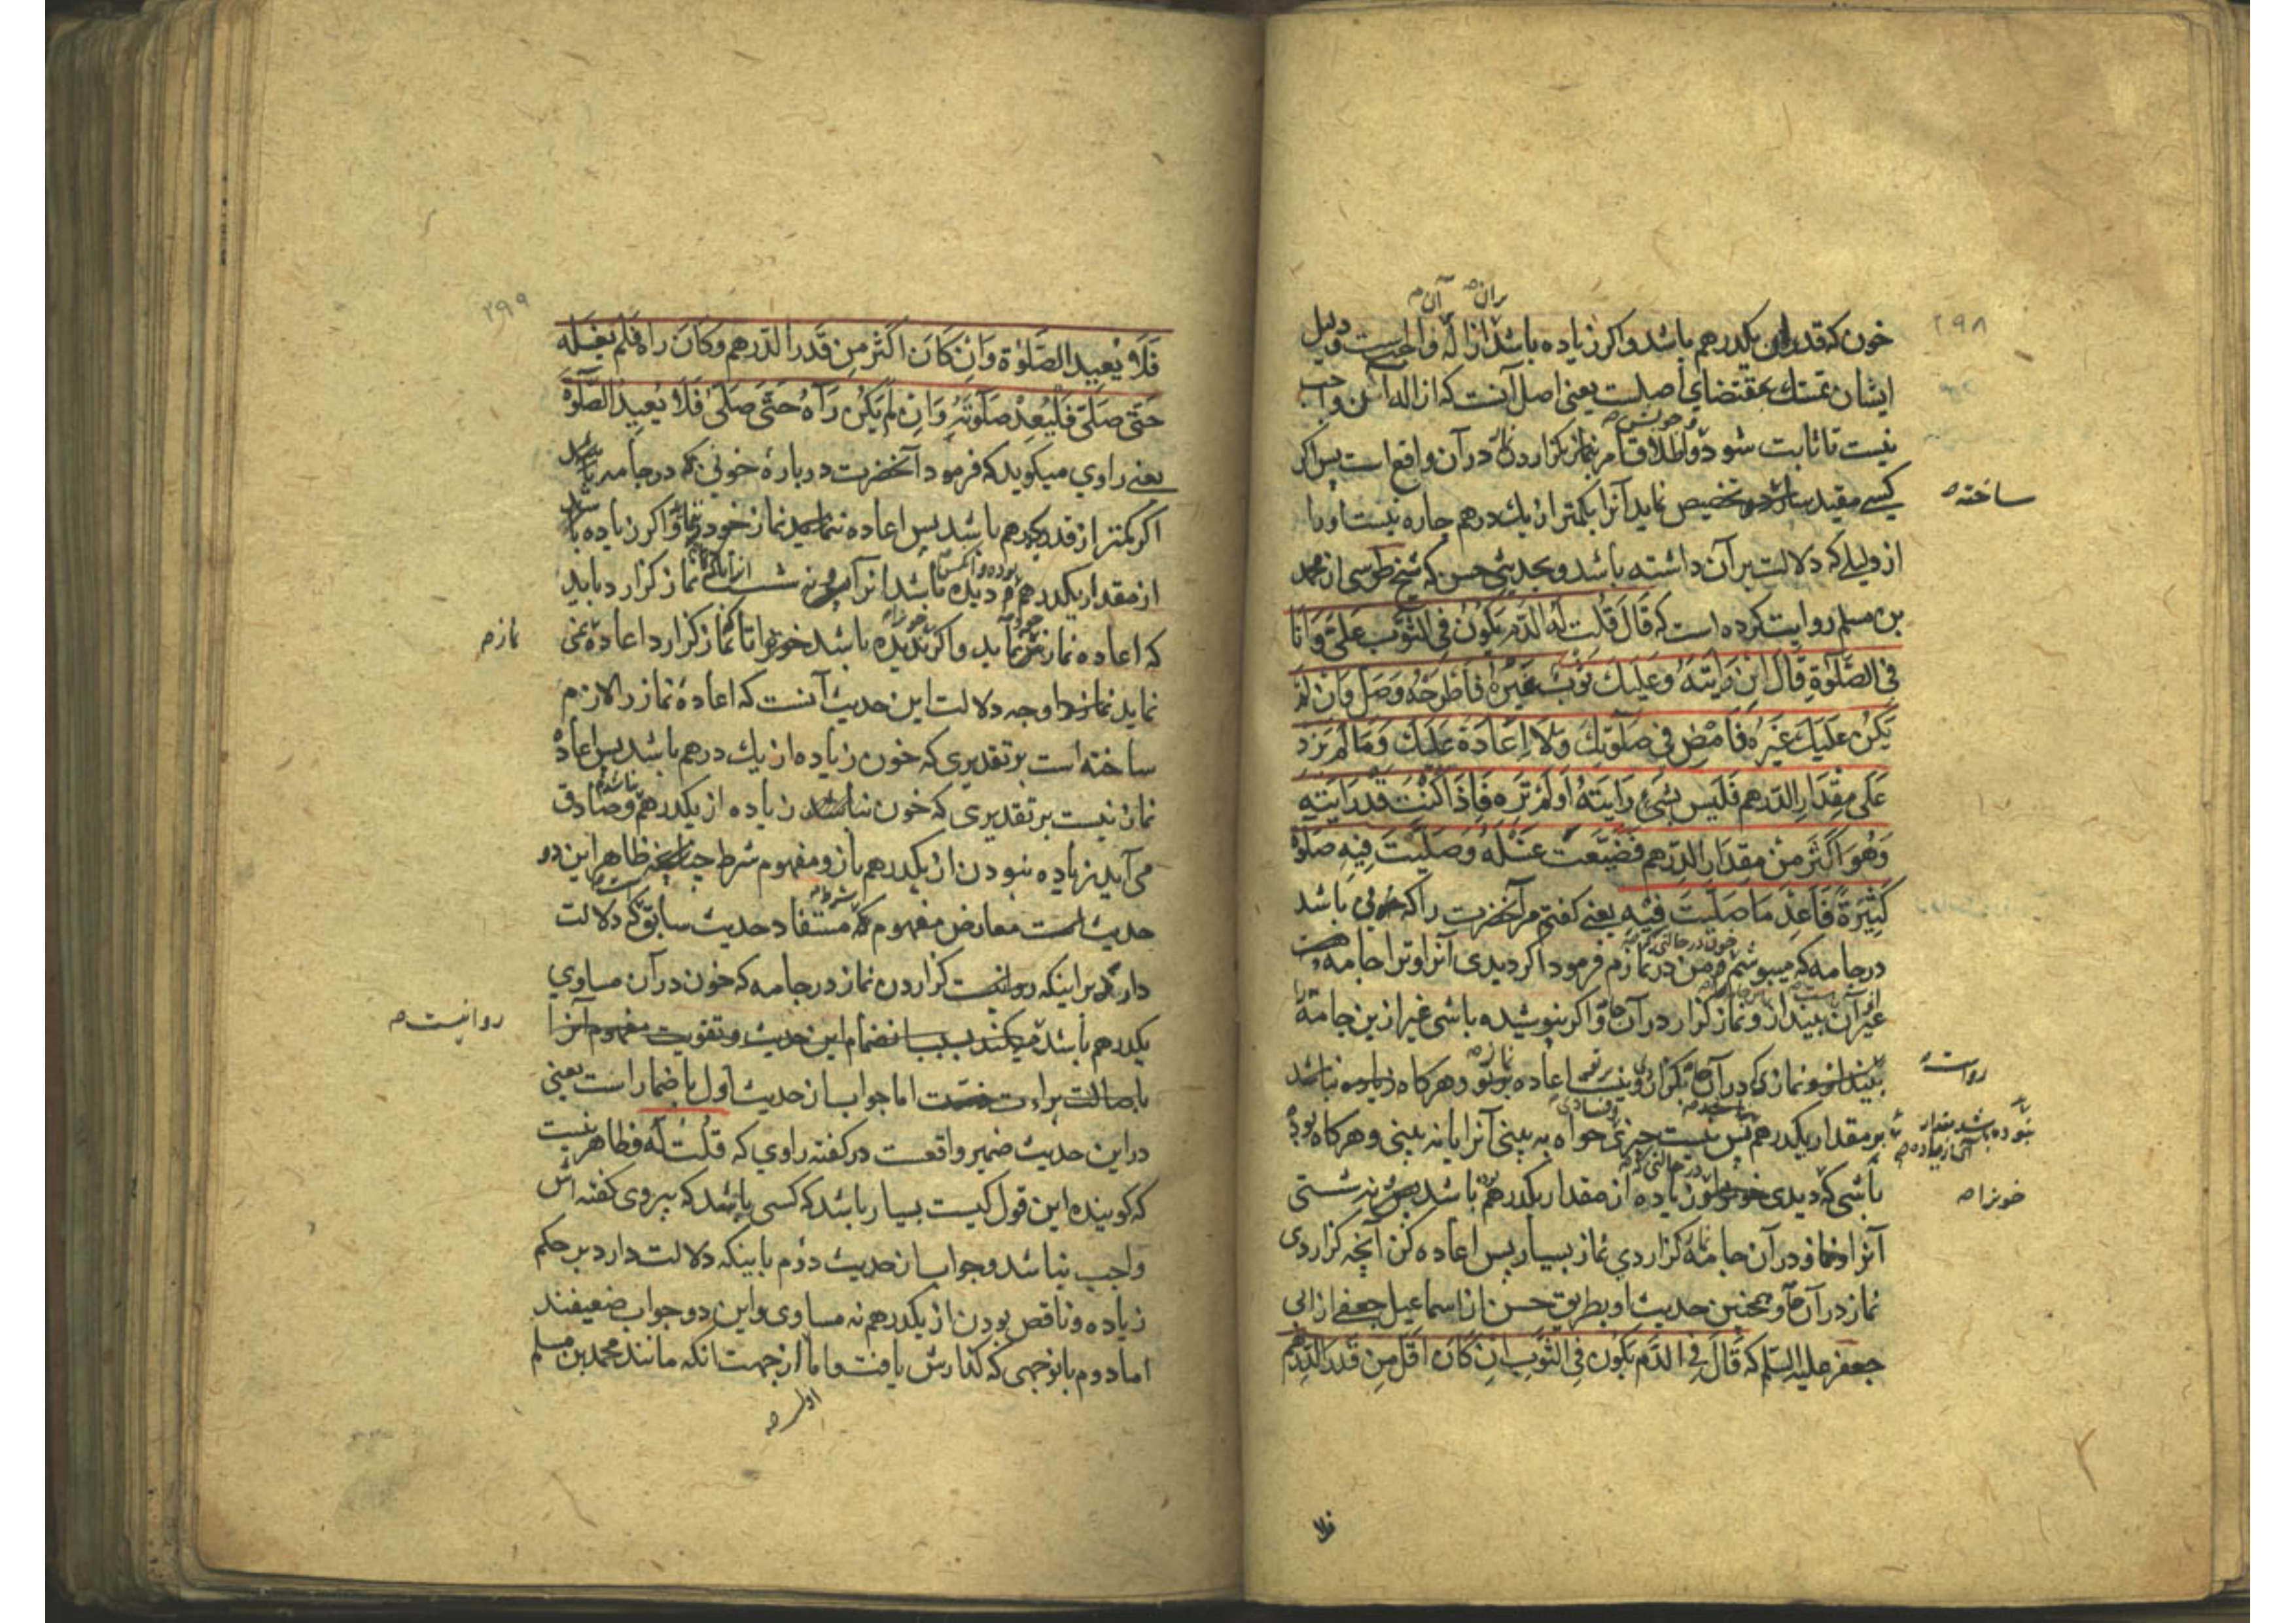 ۲۹۸
بران صه آن صه
خون که قدر یکدرهم باشد و اکر زیاده باشد ازاله واجبست و دلیل
ایشان تمسك بمقتضای اصلست یعنی اصل آنست که ازاله آن واجب
خویش صه
نیست تا ثابت شود و اطلاق امر بنماز کزاردن در آن واقع است پس اکر
کسی مقید تخصیص نماید آنرا بکمتر از یك درهم چاره نیست او را
ساخته صه
از دلیلی که دلالت بر آن داشته باشد و بحدیثی حسن که شیخ طوسی از محمد
بن مسلم روایت کرده است که قَالَ قُلْتُ لَهُ الدَّمُ یَکُونُ فِی الثَّوْبِ عَلَیَّ وَ اَنَا
فِی الصَّلٰوةِ قَالَ اِنْ رَاَیْتَهُ وَ عَلَیْكَ ثَوْبٌ غَیْرُهُ فَاطْرَحْهُ وَ صَلِّ وَ اِنْ لَمْ
یَکُنْ عَلَیْكَ غَیْرُهُ فَامْضِ فِی صَلٰوتِكَ وَ لَا اِعَادَةَ عَلَیْكَ وَ مَا لَمْ یَزِدْ
عَلَی مِقْدَارِ الدِّرْهَمِ فَلَیْسَ بِشَیْءٍ رَاَیْتَهُ اَوْ لَمْ تَرَهُ فَاِذَا کُنْتَ قَدْ رَاَیْتَهُ
وَ هُوَ اَکْثَرُ مِنْ مِقْدَارِ الدِّرْهَمِ فَضَیَّعْتَ غَسْلَهُ وَ صَلَّیْتَ فِیهِ صَلٰوةً
کَثِیرَةً فَاَعِدْ مَا صَلَّیْتَ فِیهِ یعنی کفتم مر آنحضرت را که خونی باشد
خون در حالتی که
در جامه که میپوشم من در نمازم فرمود اکر دیدی آنرا و ترا جامه هست
غیر آن بینداز و نماز کزار در آن و اکر نپوشیده باشی غیر ازین جامه
نماز در آن بکزار و نیست اعاده بر تو و هرکاه زیاده نباشد
رواست صه
بر مقدار یکدرهم پس نیست چیزی خواه به بینی آنرا یا نه بینی و هرکاه بوده
نبوده باشد مقدار
آن زیاده صه
در حالتی که
باشی که دیدی زیاده از مقدار یکدرهم باشد نه شستی
خونرا صه
آنرا و در آن جامه کزاردی نماز بسیار پس اعاده کن آنچه کزاردی
نماز در آن و همچنین حدیث او بطریق حسن از اسماعیل جعفی از ابی
جعفر علیه السلم که قَالَ فِی الدَّمِ یَکُونُ فِی الثَّوْبِ اِنْ کَانَ اَقَلَّ مِنْ قَدْرِ الدِّرْهَمِ
فلا
۲۹۹
فَلَا یُعِیدُ الصَّلٰوةَ وَ اِنْ کَانَ اَکْثَرَ مِنْ قَدْرِ الدِّرْهَمِ وَ کَانَ رَاٰهُ فَلَمْ یَغْسِلْهُ
حَتّٰی صَلّٰی فَلْیُعِدْ صَلٰوتَهُ وَ اِنْ لَمْ یَکُنْ رَآهُ حَتّٰی صَلّٰی فَلَا یُعِیدُ الصَّلٰوةَ
یعنی راوی میکوید که فرمود آنحضرت درباره خونی که در جامه باشد
اکر کمتر از قدر یکدرهم باشد پس اعاده ننماید نماز خود و اکر زیاده باشد
بوده و آنکس
از مقدار یکدرهم دیده باشد آنرا نه شست نماز کزارد باید
که اعاده نمازش نماید و اکر ندیده باشد تا نماز کزارد اعاده نمی
نماز صه
نماید وجه دلالت این حدیث آنست که اعاده نماز را لازم
ساخته است بر تقدیری که خون زیاده از یك درهم باشد پس اعاده
نماز نیست بر تقدیری که خون زیاده از یکدرهم و صادق
نباشد
می آید زیاده نبودن از یکدرهم باز و مفهوم شرط ظاهر این دو
حدیث است معارض مفهوم مستفاد حدیث سابق که دلالت
شرط
دارد بر اینکه کزاردن نماز در جامه که خون در آن مساوی
یکدرهم باشد میکند بسبب انضمام این حدیث و تقویت مفهوم آنرا
روا نیست صه
باصالت براءت اما جواب از حدیث اول باضمار است یعنی
در این حدیث ضمیر واقعست در کفته راوی که قُلْتُ لَهُ و ظاهر نیست
که کوینده این قول کیست بسیار باشد که کسی باشد که پیروی کفته اش
واجب نباشد و جواب از حدیث دوم باینکه دلالت دارد بر حکم
زیاده و ناقص بودن از یکدرهم نه مساوی و این دو جواب ضعیفند
اما دوم بانوجهی که کذارش یافت و اما از جهت انکه مانند محمد بن مسلم
اول صه